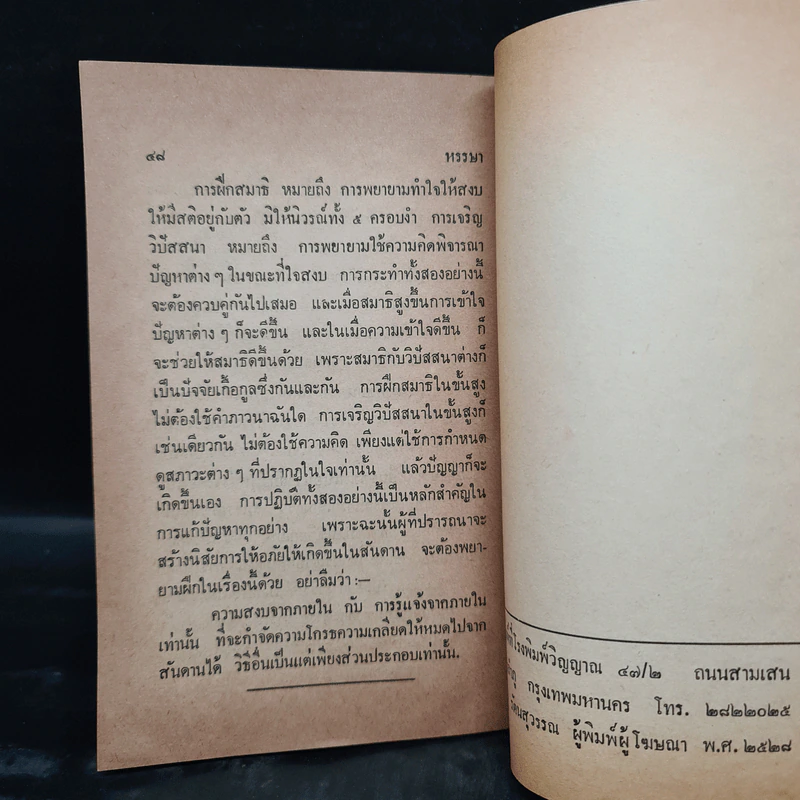 ๔๘ พรรษา
การฝึกสมาธิ หมายถึง การพยายามทำใจให้สงบ
ให้มีสติอยู่กับตัว มิให้นิวรณ์ทั้ง ๕ ครอบงำ การเจริญ
วิปัสสนา หมายถึง การพยายามใช้ความคิดพิจารณา
ปัญหาต่าง ๆ ในขณะที่ใจสงบ การกระทำทั้งสองอย่างนี้
จะต้องควบคู่กันไปเสมอ และเมื่อสมาธิสูงขึ้นการเข้าใจ
ปัญหาต่าง ๆ ก็จะดีขึ้น และในเมื่อความเข้าใจดีขึ้น ก็
จะช่วยให้สมาธิดีขึ้นด้วย เพราะสมาธิกับวิปัสสนาต่างก็
เป็นปัจจัยเกื้อกูลซึ่งกันและกัน การฝึกสมาธิในขั้นสูง
ไม่ต้องใช้คำภาวนาฉันใด การเจริญวิปัสสนาในขั้นสูงก็
เช่นเดียวกัน ไม่ต้องใช้ความคิด เพียงแต่ใช้การกำหนด
ดูสภาวะต่าง ๆ ที่ปรากฏในใจเท่านั้น แล้วปัญญาก็จะ
เกิดขึ้นเอง การปฏิบัติทั้งสองอย่างนี้เป็นหลักสำคัญใน
การแก้ปัญหาทุกอย่าง เพราะฉะนั้นผู้ที่ปรารถนาจะ
สร้างนิสัยการให้อภัยให้เกิดขึ้นในสันดาน จะต้องพยา-
ยามฝึกในเรื่องนี้ด้วย อย่าลืมว่า :—
ความสงบจากภายใน กับ การรู้แจ้งจากภายใน
เท่านั้น ที่จะกำจัดความโกรธความเกลียดให้หมดไปจาก
สันดานได้ วิธีอื่นเป็นแต่เพียงส่วนประกอบเท่านั้น.
โรงพิมพ์วิญญาณ ๔๗/๒ ถนนสามเสน
กรุงเทพมหานคร โทร. ๒๘๒๒๐๒๕
ผู้พิมพ์ผู้โฆษณา พ.ศ. ๒๕๒๘